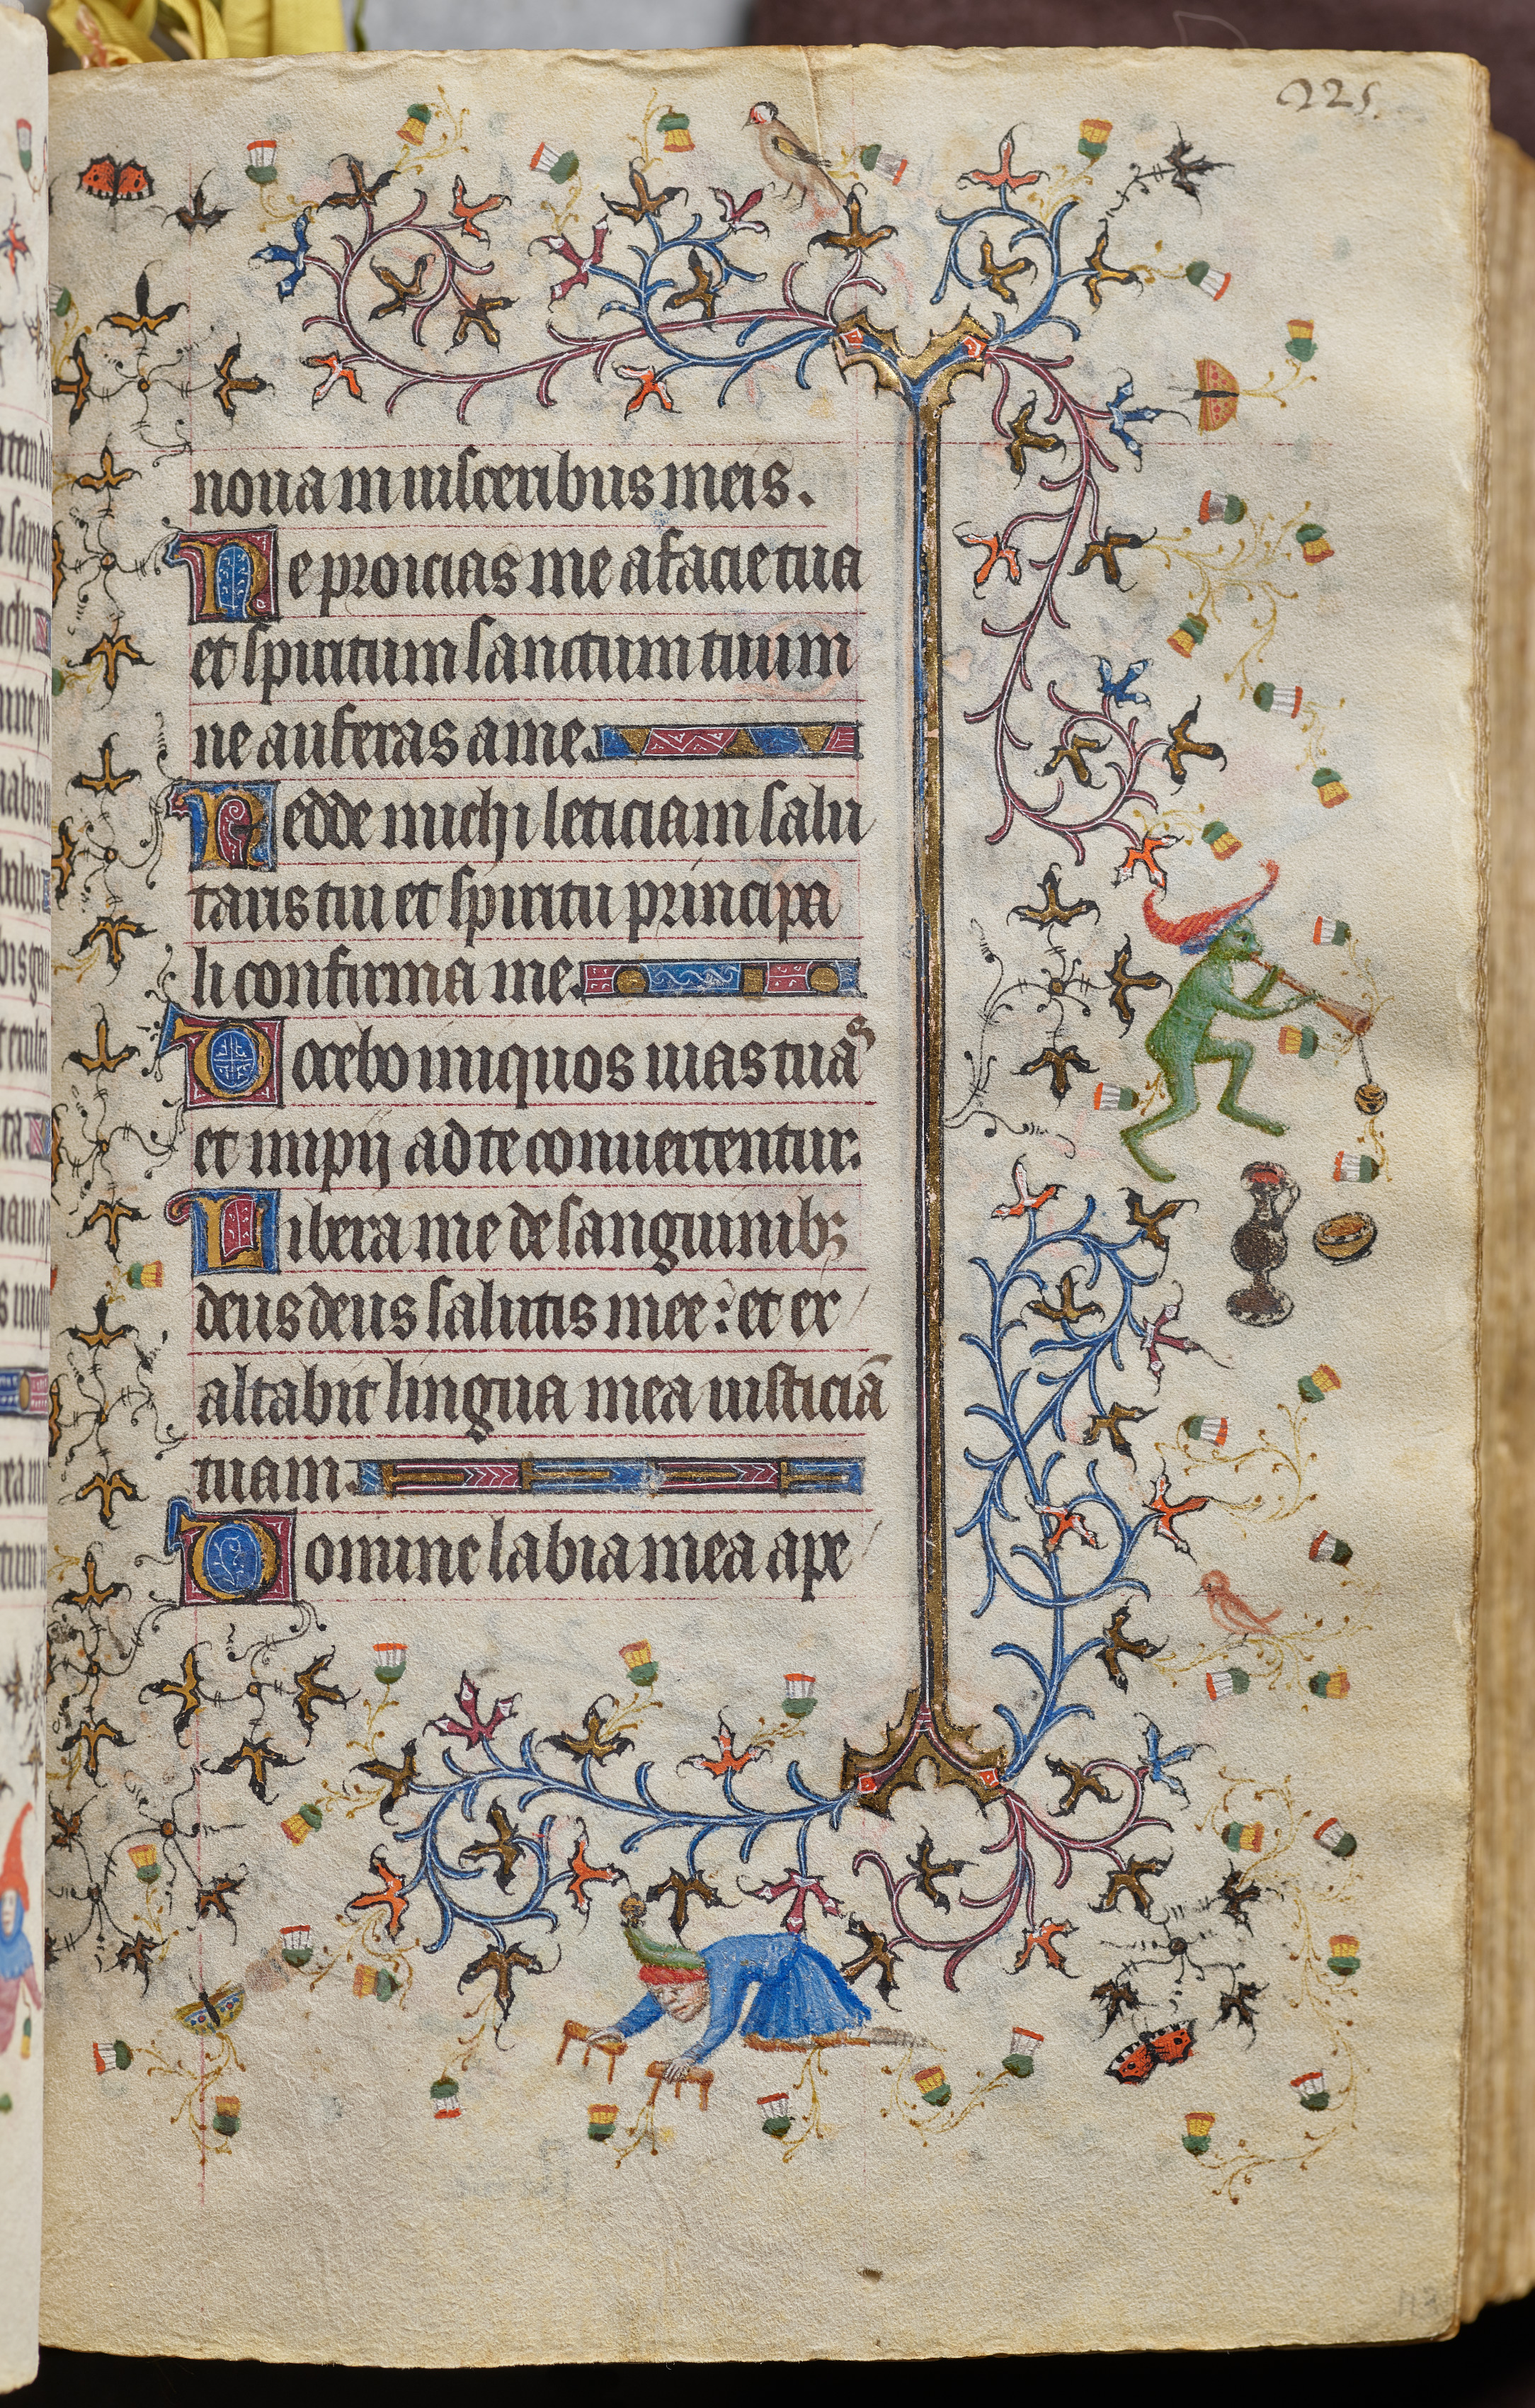 225.
noua in uisceribus meis.
Ne proicias me a facie tua
et spiritum sanctum tuum
ne auferas a me.
Redde michi leticiam salu
taris tui et spiritu principa
li confirma me.
Docebo iniquos uias tuas
et impij ad te conuertentur.
Libera me de sanguinibꝫ
deus deus salutis mee: et ex
altabit lingua mea iusticiā
tuam.
Domine labia mea ape